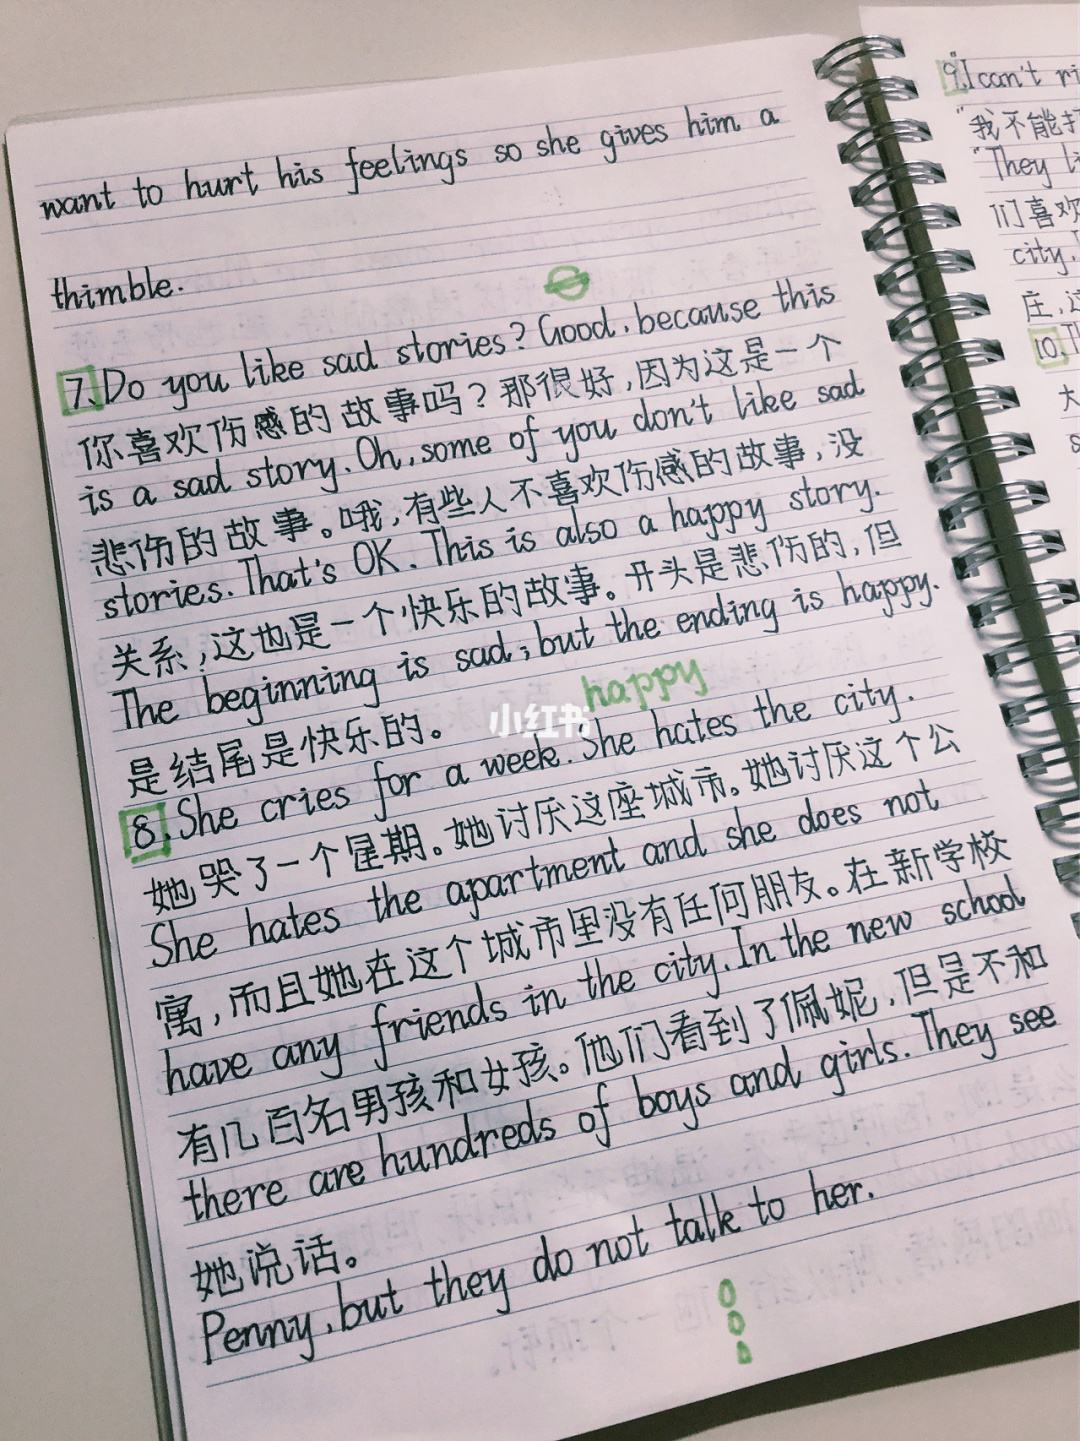 want to hurt his feelings so she gives him a
thimble.
7. Do you like sad stories? Good, because this
你喜欢伤感的故事吗？那很好，因为这是一个
is a sad story. Oh, some of you don't like sad
悲伤的故事。哦，有些人不喜欢伤感的故事，没
stories. That's OK. This is also a happy story.
关系，这也是一个快乐的故事。开头是悲伤的，但
The beginning is sad; but the ending is happy.
是结尾是快乐的。
happy
小红书
8. She cries for a week. She hates the city.
她哭了一个星期。她讨厌这座城市。她讨厌这个公
She hates the apartment and she does not
寓，而且她在这个城市里没有任何朋友。在新学校
have any friends in the city. In the new school
有几百名男孩和女孩。他们看到了佩妮，但是不和
there are hundreds of boys and girls. They see
她说话。
Penny, but they do not talk to her.
9. I can't ri
"我不能打
"They li
们喜欢
city.
庄，这
10. T
大
s